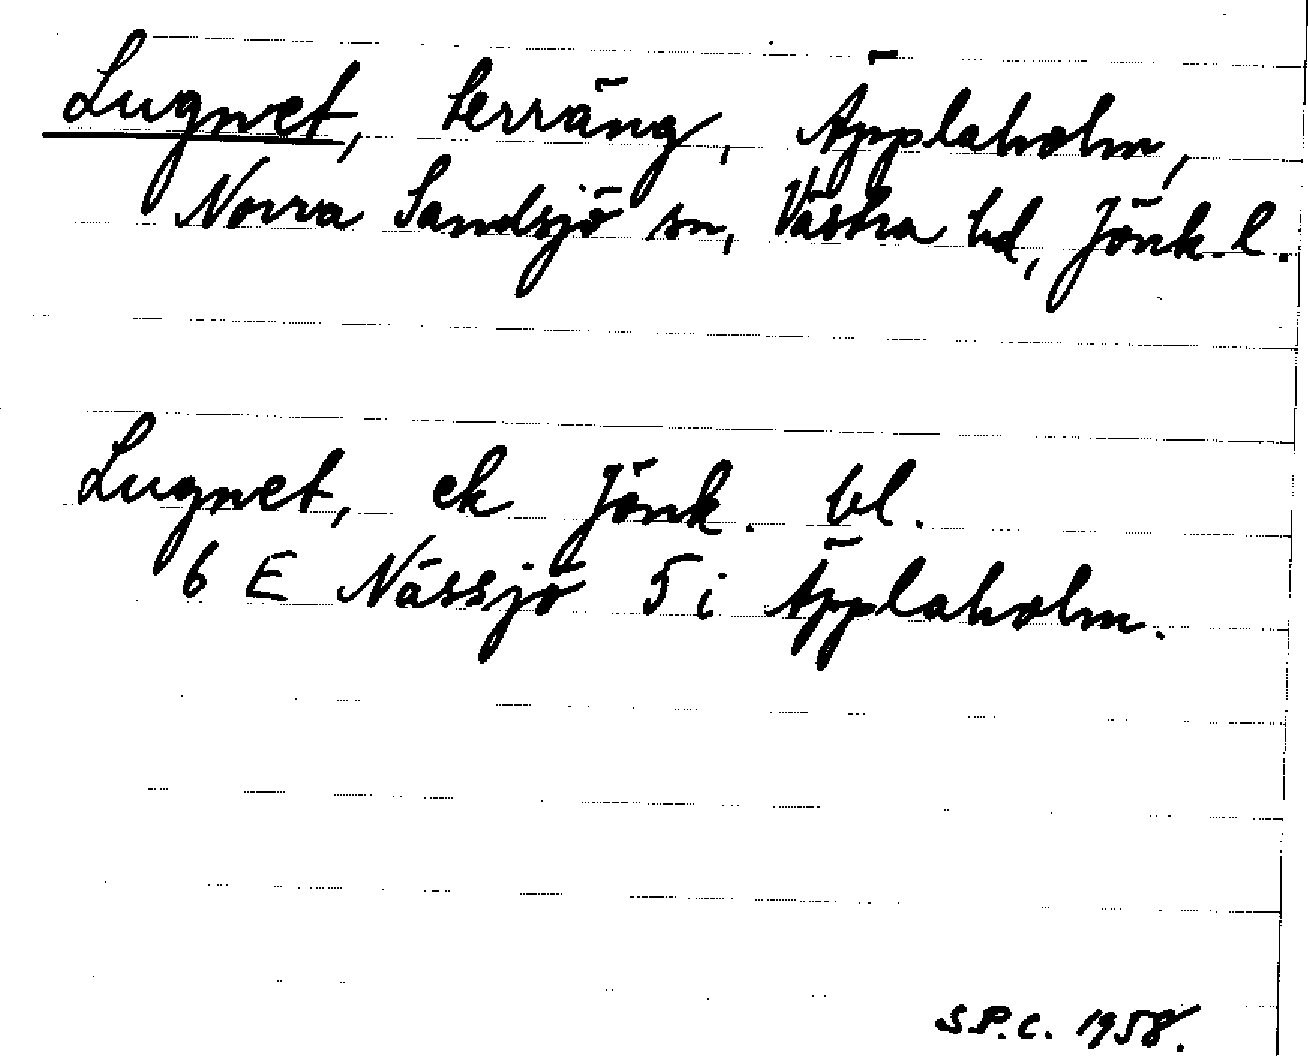 Lugnet, terräng, Äpplaholm,
Norra Sandsjö sn, Västra hd, Jönk. l.
Lugnet, ek Jönk. bl.
6 E Nässjö 5 i Äpplaholm.
S.P.C. 1958.